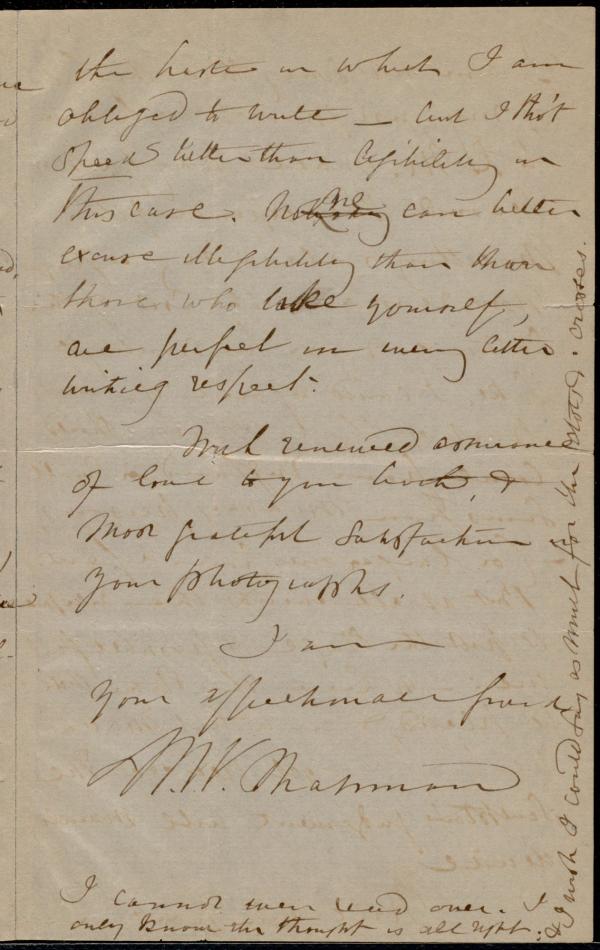 the haste in which I am
obliged to write — but I tho't
Speed better than legibility in
this case. No one can better
excuse illegibility than
those who like yourself,
are perfect in every letter
writing respect.
With renewed assurance
of love to you both, &
most grateful satisfaction in
your photographs.
I am
Your affectionate friend
M. W. Chapman
I cannot even read over. I
only know the thought is all right.
& I wish I could say as much for the crosses.